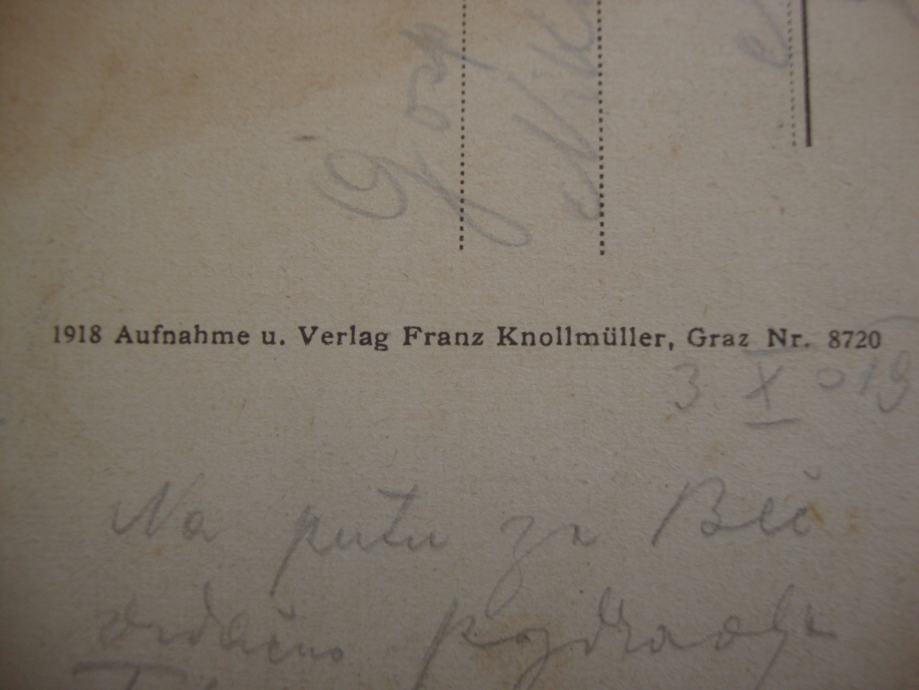 Gosp
1918 Aufnahme u. Verlag Franz Knollmüller, Graz Nr. 8720
3 X 919
Na putu za Beč
srdačno pozdravlja